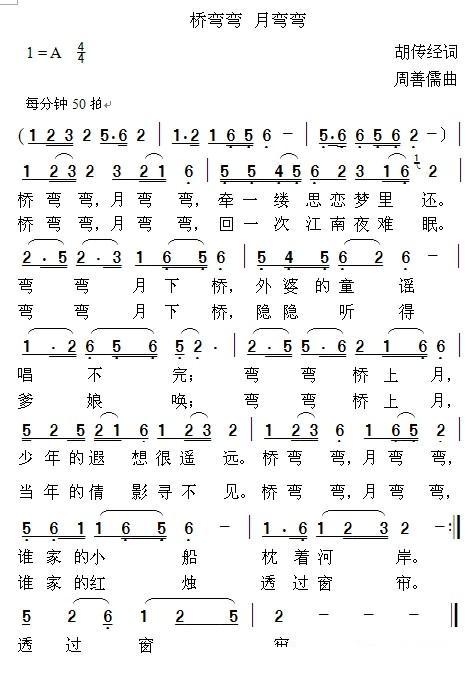 桥弯弯 月弯弯
1=A 4/4
胡传经词
周善儒曲
每分钟 50 拍
(1 2 3 2 5·6 2 | 1·2 1 6 5 6 - | 5·6 6 5 6 2 - )|
1 2 3 2 3 2 1 6 | 5 5 4 5 6 2 3 1 6 1 |
桥弯 弯,月弯 弯, 牵一缕 思恋梦里 还。
桥弯 弯,月弯 弯, 回一次 江南夜难 眠。
2·5 2·3 1 6 5 6 | 5 4 5 6 2 6 - |
弯 弯 月下 桥, 外婆 的童 谣
弯 弯 月下 桥, 隐隐 听 得
1·2 6 5 6 5 2· | 2·5 5·6 1 2 6 |
唱 不 完; 弯 弯 桥上 月,
爹 娘 唤; 弯 弯 桥上 月,
5 5 5 2 1 6 1 2 3 2 | 1 2 3 2 3 2 1 6 |
少年的遐 想很遥 远。桥弯 弯,月弯 弯,
当年的倩 影寻不 见。桥弯 弯,月弯 弯,
5 6 1 1 6 5 6 - | 1·6 1 2 3 2 - :||
谁家的小 船 枕着河 岸。
谁家的红 烛 透过窗 帘。
5 2 6 1 6 5 | 2 - - - |
透 过 窗 帘